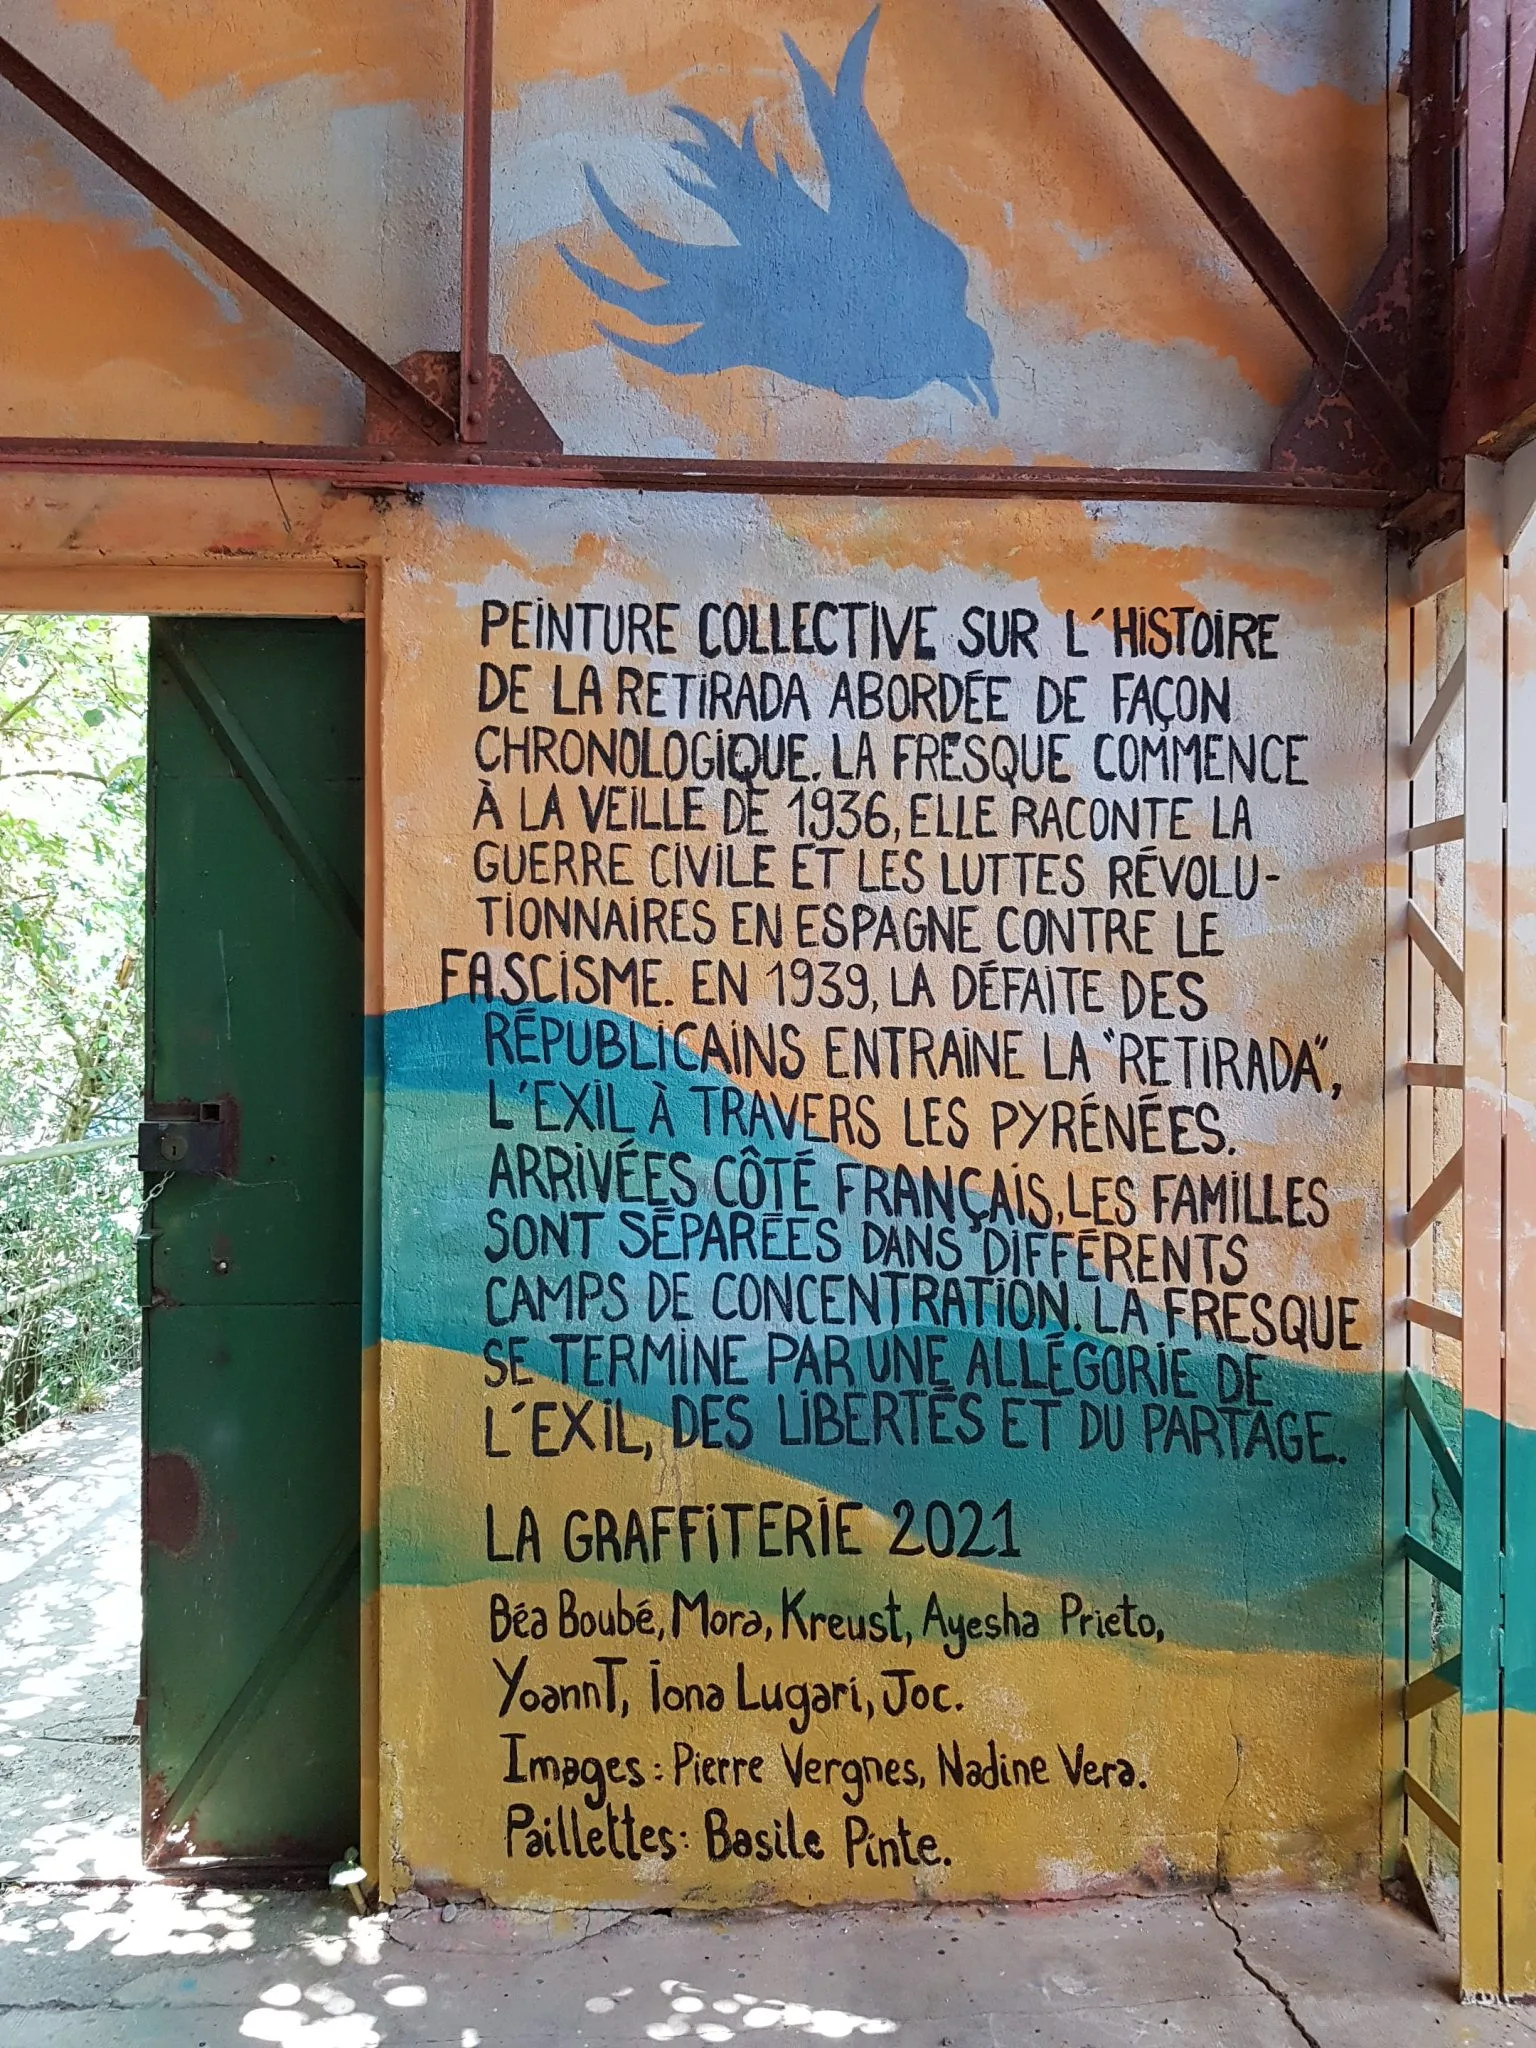 PEINTURE COLLECTIVE SUR L'HISTOIRE
DE LA RETIRADA ABORDÉE DE FAÇON
CHRONOLOGIQUE. LA FRESQUE COMMENCE
À LA VEILLE DE 1936, ELLE RACONTE LA
GUERRE CIVILE ET LES LUTTES RÉVOLU-
TIONNAIRES EN ESPAGNE CONTRE LE
FASCISME. EN 1939, LA DÉFAITE DES
RÉPUBLICAINS ENTRAINE LA "RETIRADA",
L'EXIL À TRAVERS LES PYRÉNÉES.
ARRIVÉES CÔTÉ FRANÇAIS, LES FAMILLES
SONT SÉPARÉES DANS DIFFÉRENTS
CAMPS DE CONCENTRATION. LA FRESQUE
SE TERMINE PAR UNE ALLÉGORIE DE
L'EXIL, DES LIBERTÉS ET DU PARTAGE.
LA GRAFFITERIE 2021
Béa Boubé, Mora, Kreust, Ayesha Prieto,
YoannT, Iona Lugari, Joc.
Images : Pierre Vergnes, Nadine Vera.
Paillettes : Basile Pinte.